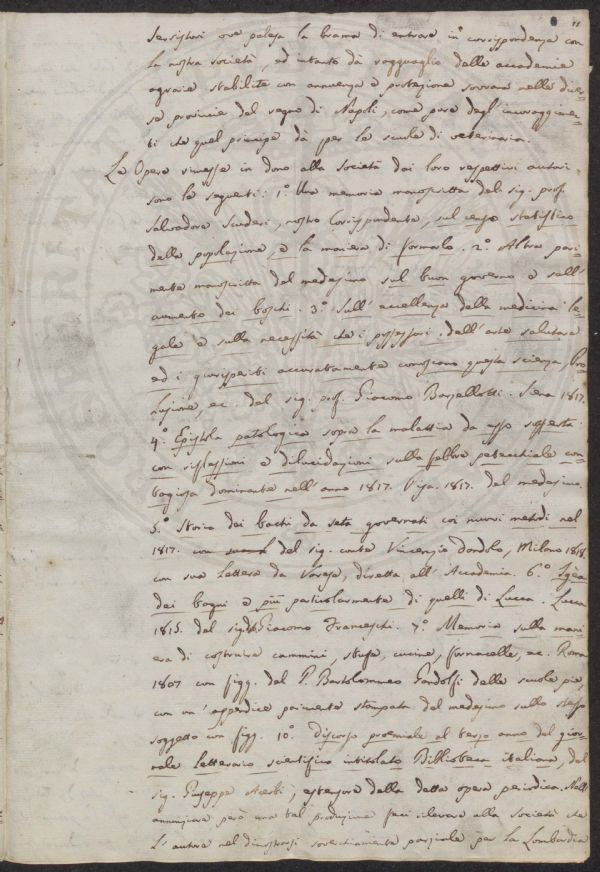 11
ove palesa la brama di entrare in corrispondenza con
la nostra società, ed intanto dà ragguaglio delle accademie
agrarie stabilite con annuenza e protezione sovrana nelle diver-
se provincie del regno di Napoli, come pure degl' incoraggimen-
ti che quel principe dà per le scuole di veterinaria.
Le Opere rimesse in dono alla Società dai loro respettivi autori,
sono le seguenti: 1.° Una memoria manoscritta del sig. prof.
Salvadore Scuderi, nostro Corrispondente, sul censo statistico
della popolazione, e la maniera di formarlo. 2.° Altra pari-
mente manoscritta del medesimo sul buon governo e sull'
aumento dei boschi. 3.° Sull' eccellenza della medicina le-
gale e sulla necessità che i possessori dell' arte salutare
ed i giurisperiti accuratamente conoscano questa scienza, Pro-
lusione, ec. del sig. prof. Giacomo Barzellotti. Siena 1817.
4.° Epistola patologica sopra la malattia da esso sofferta
con riflessioni e dilucidazioni sulla febbre petecchiale con-
tagiosa dominante nell' anno 1817. Pisa. 1817. del medesimo.
5.° Storia dei bachi da seta governati coi nuovi metodi nel
1817. del sig. conte Vincenzio Dandolo, Milano 1818.
con sua Lettera da Varese, diretta all' Accademia. 6.° Igea
dei bagni e più particolarmente di quelli di Lucca. Lucca
1815. del Giacomo Franceschi. 7.° Memoria sulla mani-
era di costruire cammini, stufe, cucine, fornacelle, ec. Roma
1807 con figg. del P. Bartolommeo Gandolfi delle scuole pie,
con un' appendice parimente stampata del medesimo sullo stesso
soggetto con figg. 10.° Discorso proemiale al terzo anno del gior-
nale Letterario scientifico intitolato Biblioteca italiana, del
sig. Giuseppe Acerbi, estensore della detta opera periodica. Nell'
annunziare però una tal produzione feci rilevare alla Società che
l' autore nel dimostrarsi soverchiamente parziale per la Lombardia